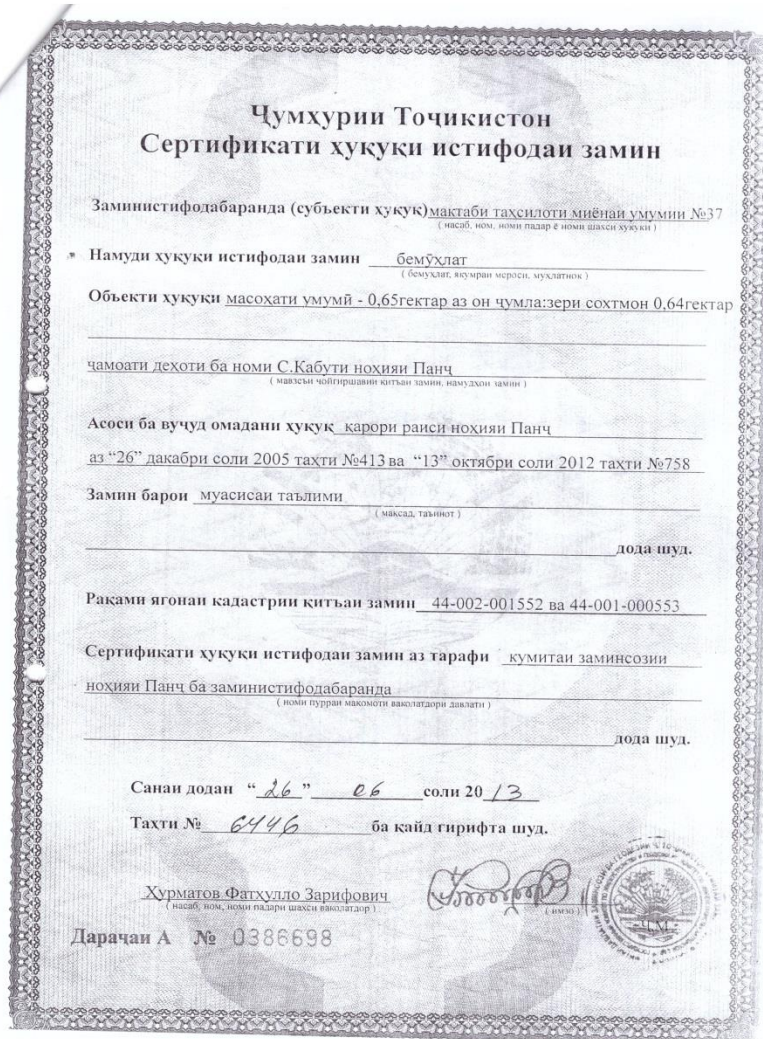 Ҷумҳурии Тоҷикистон
Сертификати ҳуқуқи истифодаи замин
Заминистифодабаранда (субъекти ҳуқуқ) мактаби таҳсилоти миёнаи умумии №37
( насаб, ном, номи падар ё номи шахси ҳуқуқӣ )
Намуди ҳуқуқи истифодаи замин бемӯҳлат
( бемуҳлат, якумраи меросӣ, муҳлатнок )
Объекти ҳуқуқи масоҳати умумӣ - 0,65гектар аз он ҷумла:зери сохтмон 0,64гектар
ҷамоати деҳоти ба номи С.Кабути ноҳияи Панҷ
( мавзеъи ҷойгиршавии китъаи замин, намудҳои замин )
Асоси ба вуҷуд омадани ҳуқуқ қарори раиси ноҳияи Панҷ
аз “26” дакабри соли 2005 таҳти №413 ва “13” октябри соли 2012 таҳти №758
Замин барои муасисаи таълими
( мақсад, таъинот )
дода шуд.
Рақами ягонаи кадастрии қитъаи замин 44-002-001552 ва 44-001-000553
Сертификати ҳуқуқи истифодаи замин аз тарафи кумитаи заминсозии
ноҳияи Панҷ ба заминистифодабаранда
( номи пурраи мақомоти ваколатдори давлатӣ )
дода шуд.
Санаи додан “ 26 ” 06 соли 20 13
Таҳти № 6446 ба қайд гирифта шуд.
Ҳурматов Фатҳулло Зарифович
( насаб, ном, номи падари шахси ваколатдор )
( имзо )
Ҷ.М.
Дараҷаи А № 0386698